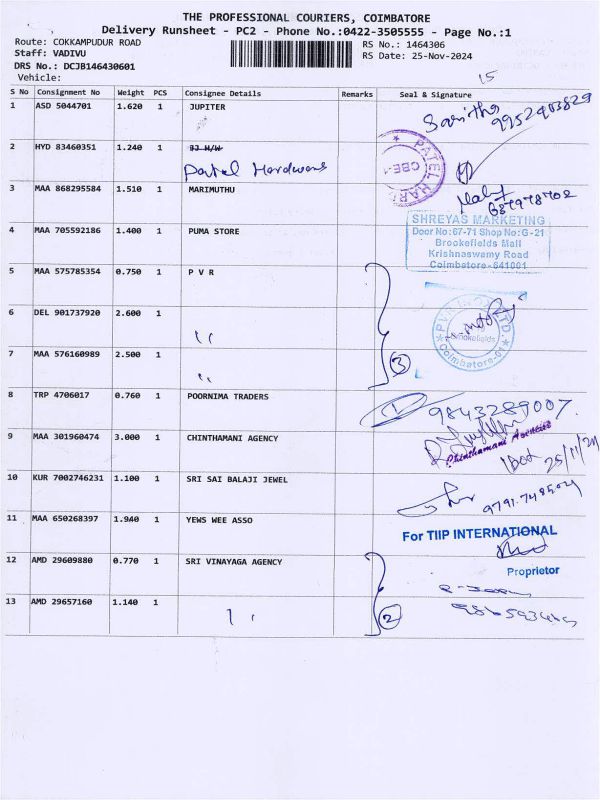 THE PROFESSIONAL COURIERS, COIMBATORE
Delivery Runsheet - PC2 - Phone No.:0422-3505555 - Page No.:1
Route: COKKAMPUDUR ROAD RS No.: 1464306
Staff: VADIVU RS Date: 25-Nov-2024
DRS No.: DCJB146430601
Vehicle:
15
S No Consignment No Weight PCS Consignee Details Remarks Seal & Signature
1 ASD 5044701 1.620 1 JUPITER
9952403829
2 HYD 83460351 1.240 1 JJ H/W
Patel Hardwares
PATEL HAR
CBE-1
3 MAA 868295584 1.510 1 MARIMUTHU
4 MAA 705592186 1.400 1 PUMA STORE
SHREYAS MARKETING
Door No:67-71 Shop No:G-21
Brookefields Mall
Krishnaswamy Road
Coimbatore-641001
5 MAA 575785354 0.750 1 P V R
6 DEL 901737920 2.600 1 "
PVR INOX LTD
Brookefields
Coimbatore-01
7 MAA 576160989 2.500 1 "
3
8 TRP 4706017 0.760 1 POORNIMA TRADERS
1 9843289007.
9 MAA 301960474 3.000 1 CHINTHAMANI AGENCY
Chinthamani Agencies
25/11/24
10 KUR 7002746231 1.100 1 SRI SAI BALAJI JEWEL
11 MAA 650268397 1.940 1 YEWS WEE ASSO
For TIIP INTERNATIONAL
Proprietor
12 AMD 29609880 0.770 1 SRI VINAYAGA AGENCY
13 AMD 29657160 1.140 1 "
2